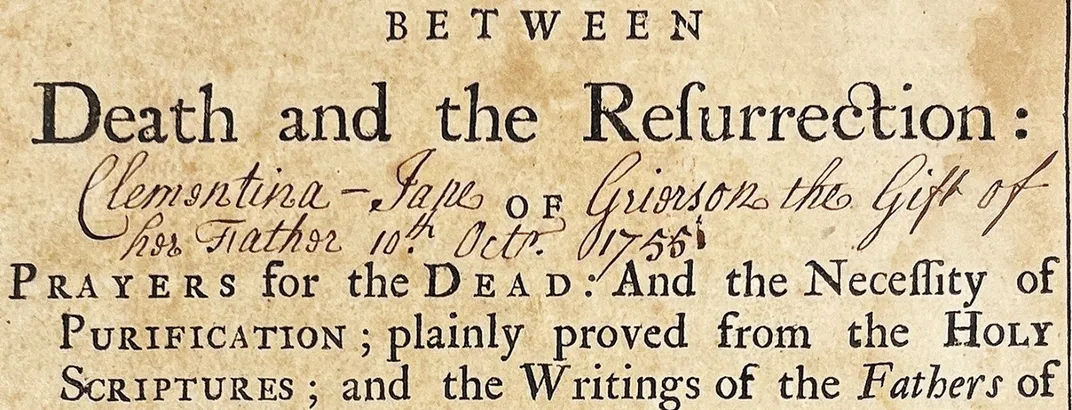 BETWEEN
Death and the Reſurrection:
Clementina - Jane OF Grierson the Gift of
her Father 10.th Octr. 1755
PRAYERS for the DEAD: And the Neceſſity of
PURIFICATION; plainly proved from the HOLY
SCRIPTURES; and the Writings of the Fathers of